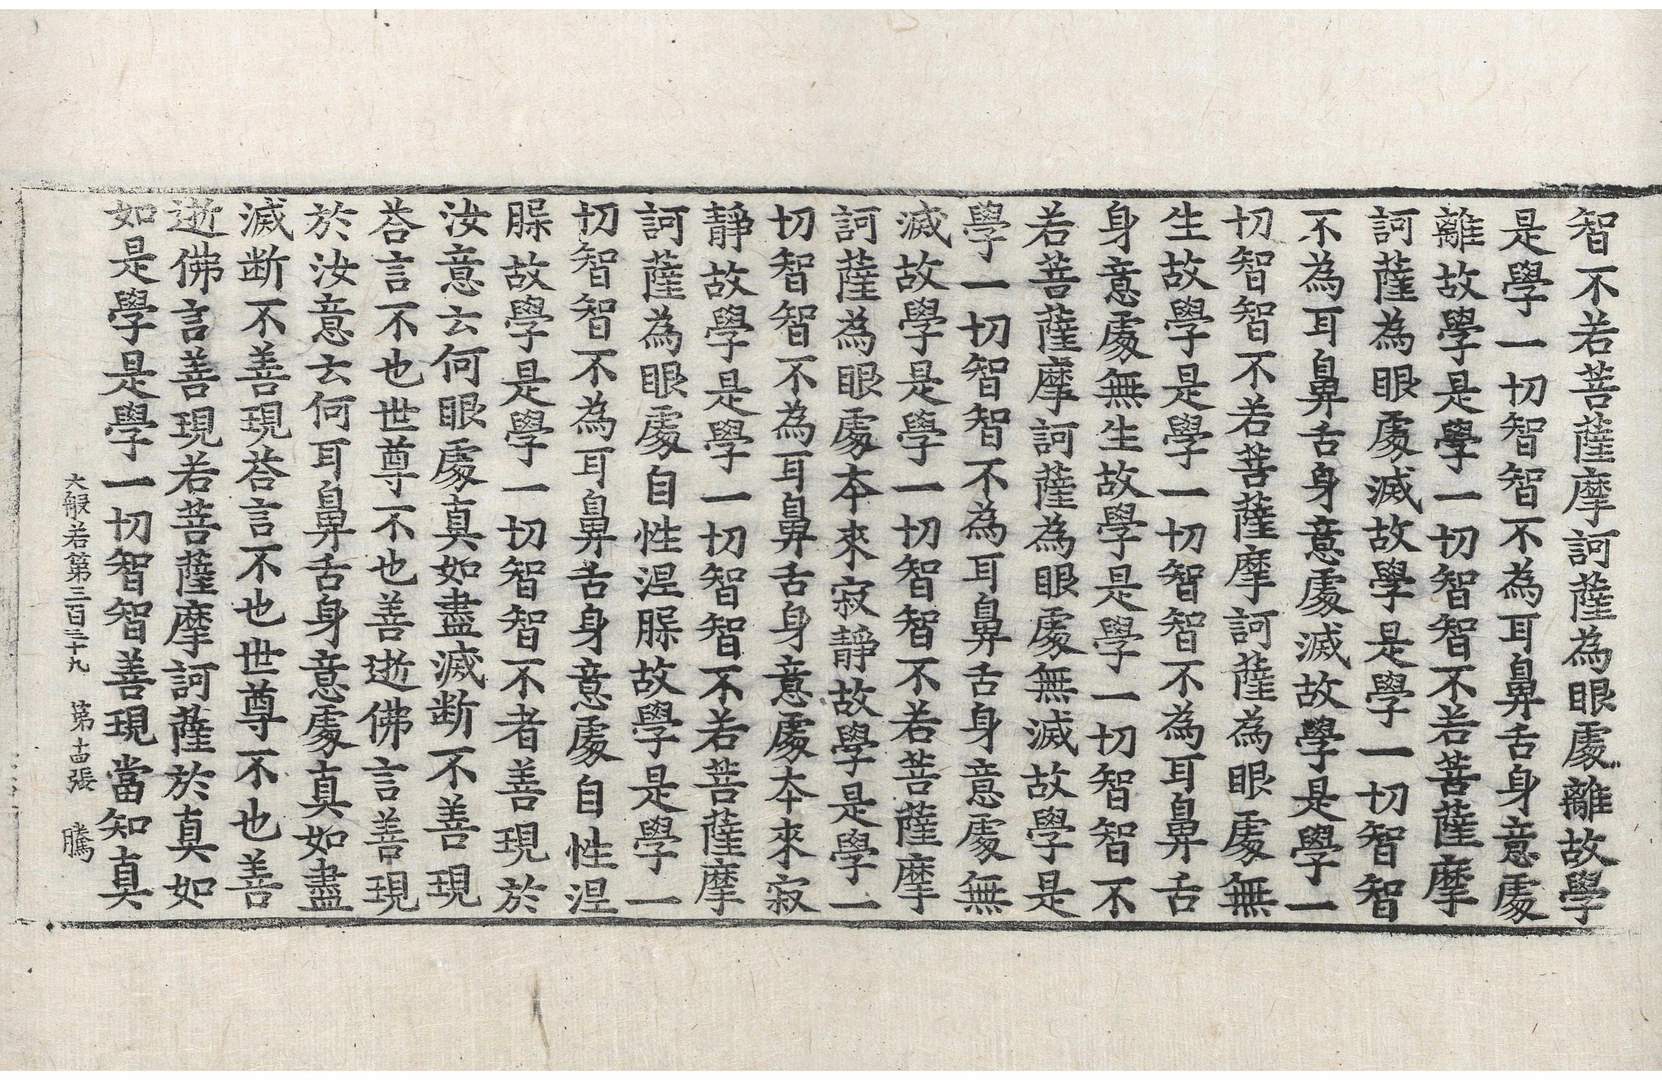 智不若菩薩摩訶薩為眼處離故學
是學一切智智不為耳鼻舌身意處
離故學是學一切智智不若菩薩摩
訶薩為眼處滅故學是學一切智智
不為耳鼻舌身意處滅故學是學一
切智智不若菩薩摩訶薩為眼處無
生故學是學一切智智不為耳鼻舌
身意處無生故學是學一切智智不
若菩薩摩訶薩為眼處無滅故學是
學一切智智不為耳鼻舌身意處無
滅故學是學一切智智不若菩薩摩
訶薩為眼處本來寂靜故學是學一
切智智不為耳鼻舌身意處本來寂
靜故學是學一切智智不若菩薩摩
訶薩為眼處自性涅槃故學是學一
切智智不為耳鼻舌身意處自性涅
槃故學是學一切智智不者善現於
汝意云何眼處真如盡滅断不善現
荅言不也世尊不也善逝佛言善現
於汝意云何耳鼻舌身意處真如盡
滅断不善現荅言不也世尊不也善
逝佛言善現若菩薩摩訶薩於真如
如是學是學一切智智善現當知真
大般若第三百三十九 第十四張 騰